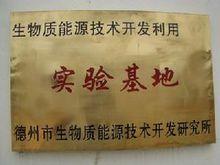 生物质能源技术开发利用
实验基地
德州市生物质能源技术开发研究所